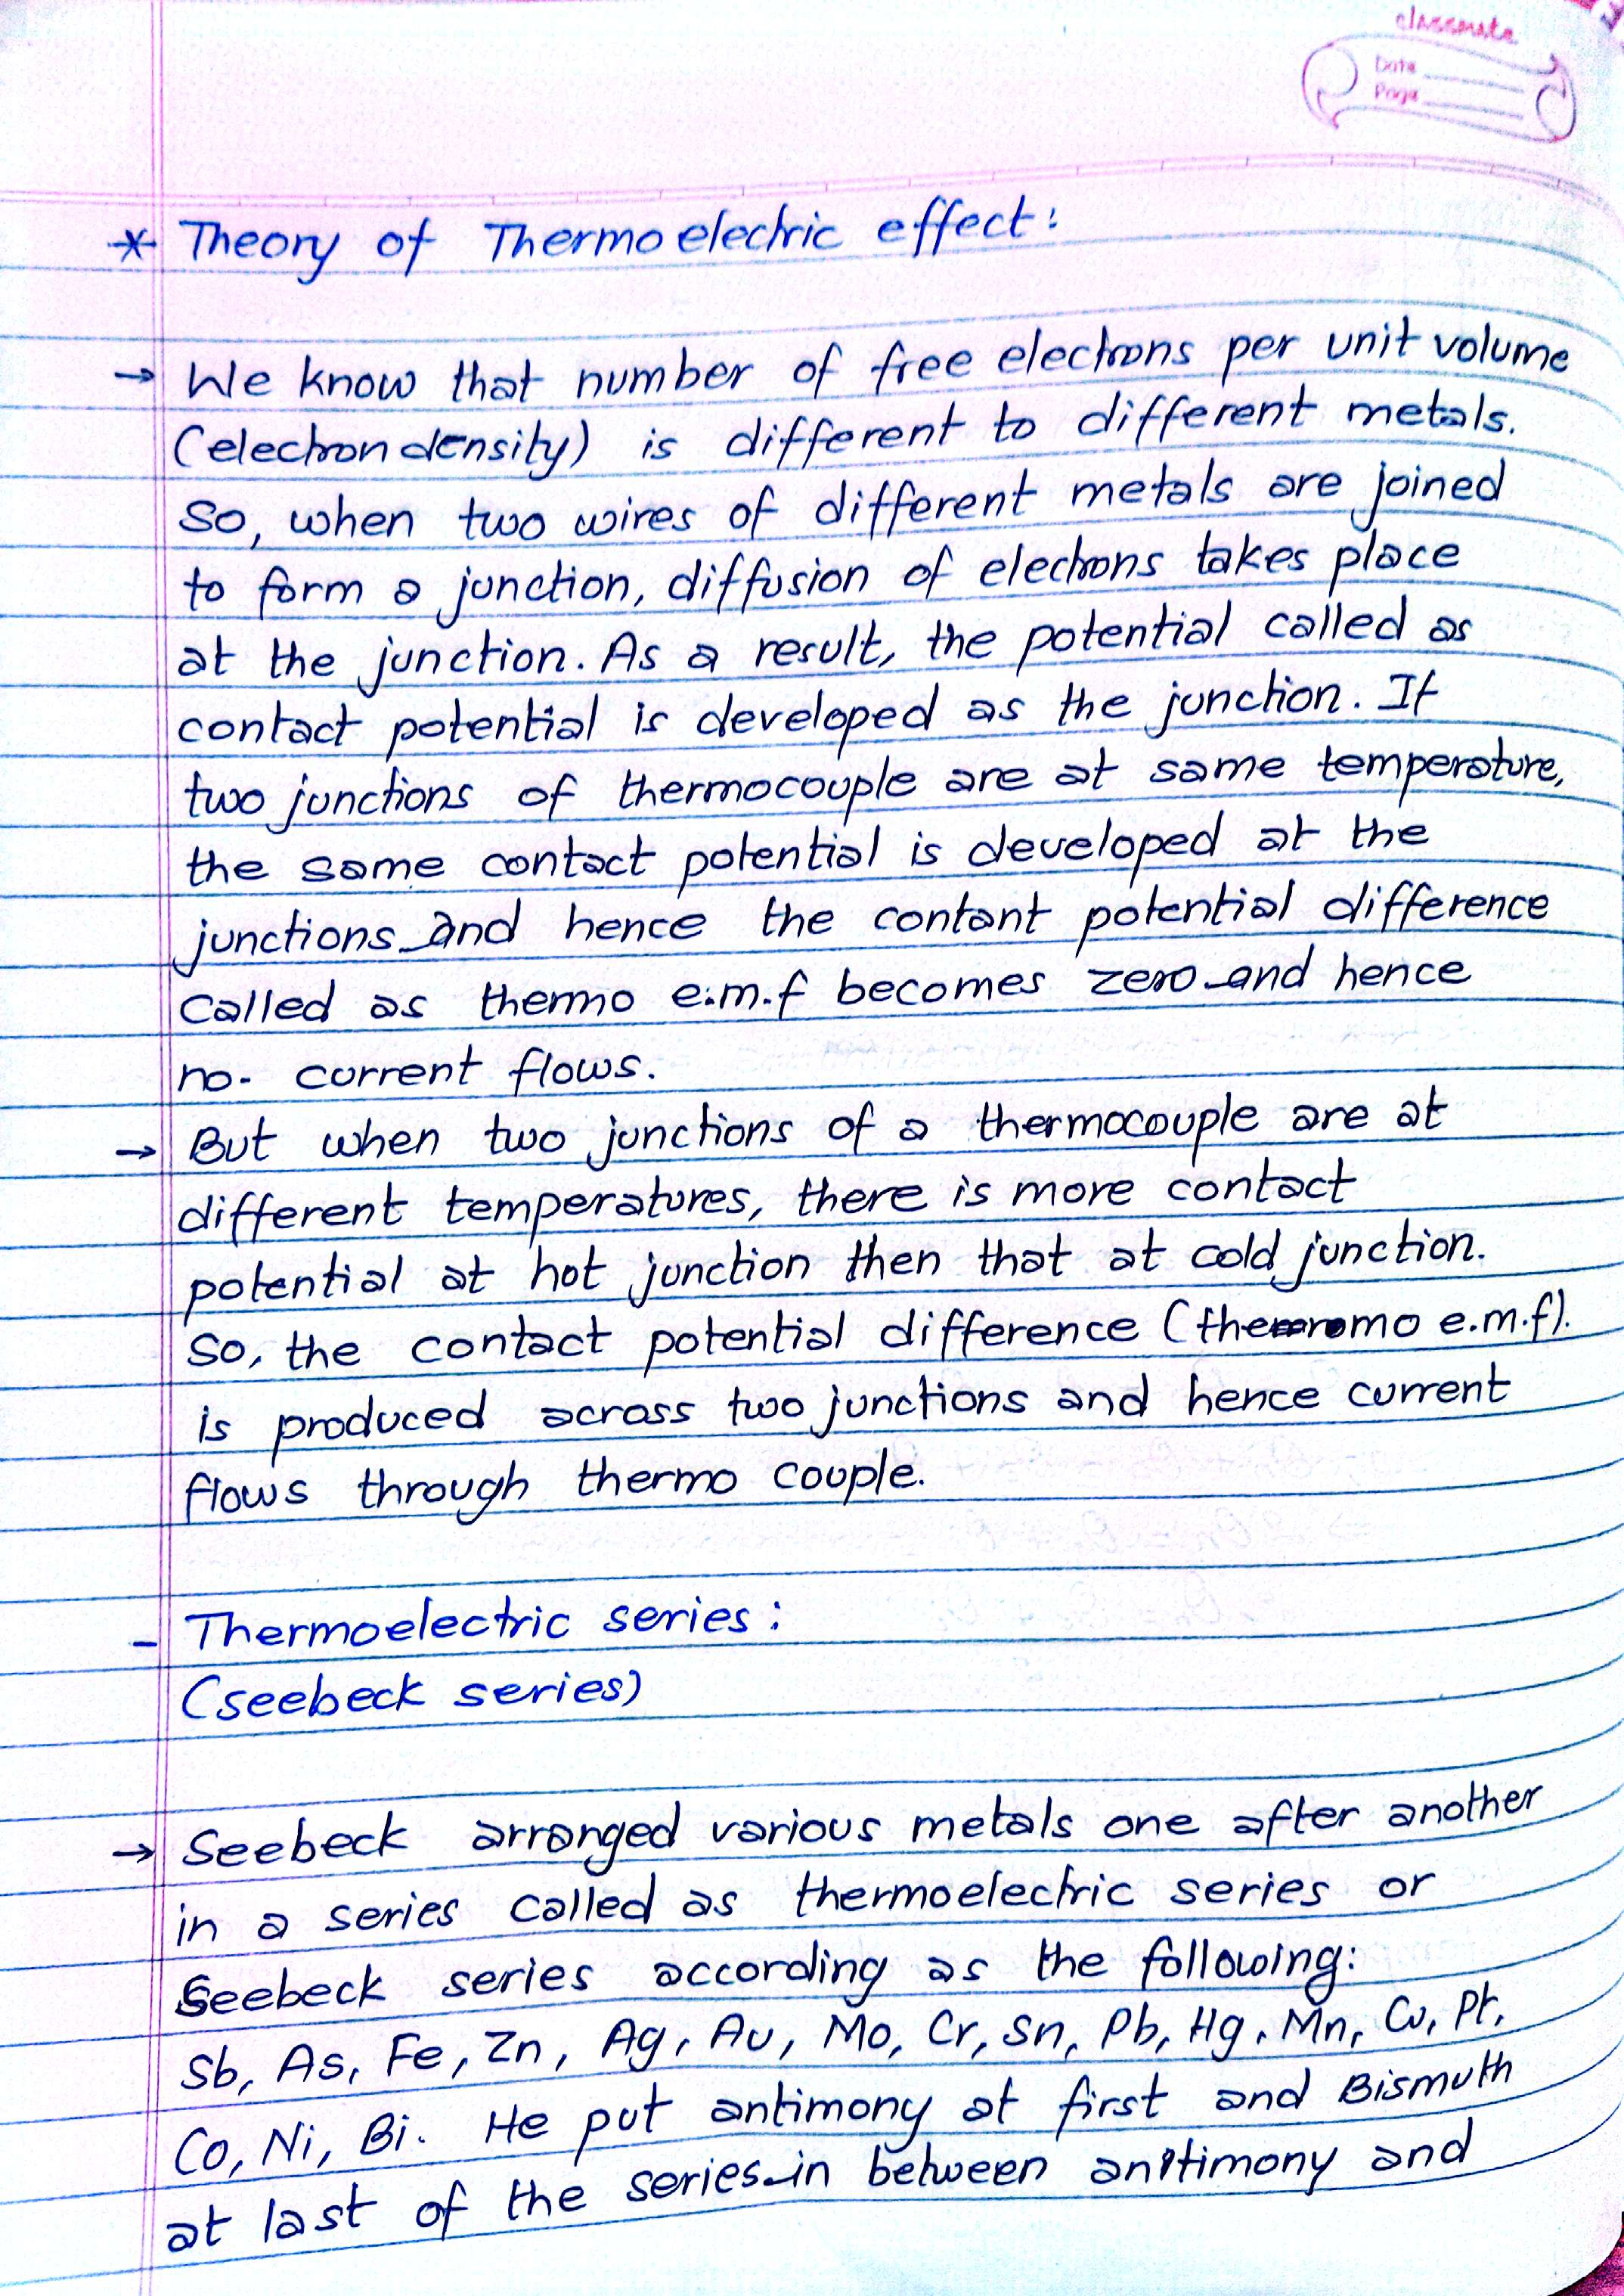 classmate
Date
Page
* Theory of Thermoelectric effect:
→ We know that number of free electrons per unit volume
(electron density) is different to different metals.
So, when two wires of different metals are joined
to form a junction, diffusion of electrons takes place
at the junction. As a result, the potential called as
contact potential is developed as the junction. If
two junctions of thermocouple are at same temperature,
the same contact potential is developed at the
junctions and hence the contant potential difference
called as thermo e.m.f becomes zero and hence
no. current flows.
→ But when two junctions of a thermocouple are at
different temperatures, there is more contact
potential at hot junction then that at cold junction.
So, the contact potential difference (thermo e.m.f).
is produced across two junctions and hence current
flows through thermo couple.
- Thermoelectric series:
(seebeck series)
→ Seebeck arranged various metals one after another
in a series called as thermoelectric series or
Seebeck series according as the following:
Sb, As, Fe, Zn, Ag, Au, Mo, Cr, Sn, Pb, Hg, Mn, Cu, Pt,
Co, Ni, Bi. He put antimony at first and Bismuth
at last of the series in between antimony and